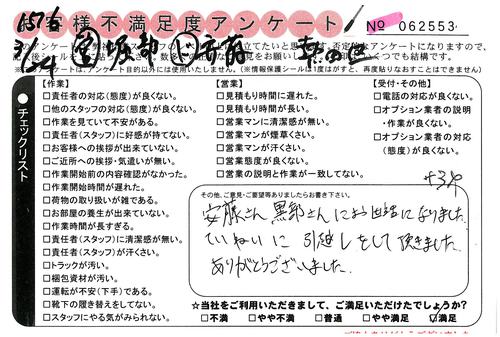 お客様不満足度アンケート
No 062553
【作業】
□責任者の対応(態度)が良くない。
□他のスタッフの対応(態度)が良くない。
□作業を見ていて不安がある。
□責任者(スタッフ)に好感が持てない。
□お客様への挨拶が出来ていない。
□ご近所への挨拶・気遣いが無い。
□作業開始前の内容確認がなかった。
□作業開始時間が遅れた。
□荷物の取り扱いが雑である。
□お部屋の養生が出来ていない。
□作業時間が長すぎる。
□責任者(スタッフ)に清潔感が無い。
□責任者(スタッフ)が汗くさい。
□トラックが汚い。
□梱包資材が汚い。
□運転が不安(下手)である。
□靴下の履き替えをしてない。
□スタッフにやる気がみられない。
チェックリスト
【営業】
□見積もり時間に遅れた。
□見積もり時間が長い。
□営業マンに清潔感が無い。
□営業マンが煙草くさい。
□営業マンが汗くさい。
□営業態度が良くない。
□営業の説明と作業が一致してない。
【受付・その他】
□電話の対応が良くない。
□オプション業者の説明
・作業が良くない。
□オプション業者の対応
(態度)が良くない。
その他、ご意見・ご要望等ありましたらお書き下さい。
安藤さん 黒部さんにお世話になりました
ていねいに 引越しをして頂きました
ありがとうございました
☆当社をご利用いただきまして、ご満足いただけたでしょうか?
□不満 □やや不満 □普通 □やや満足 ☑満足